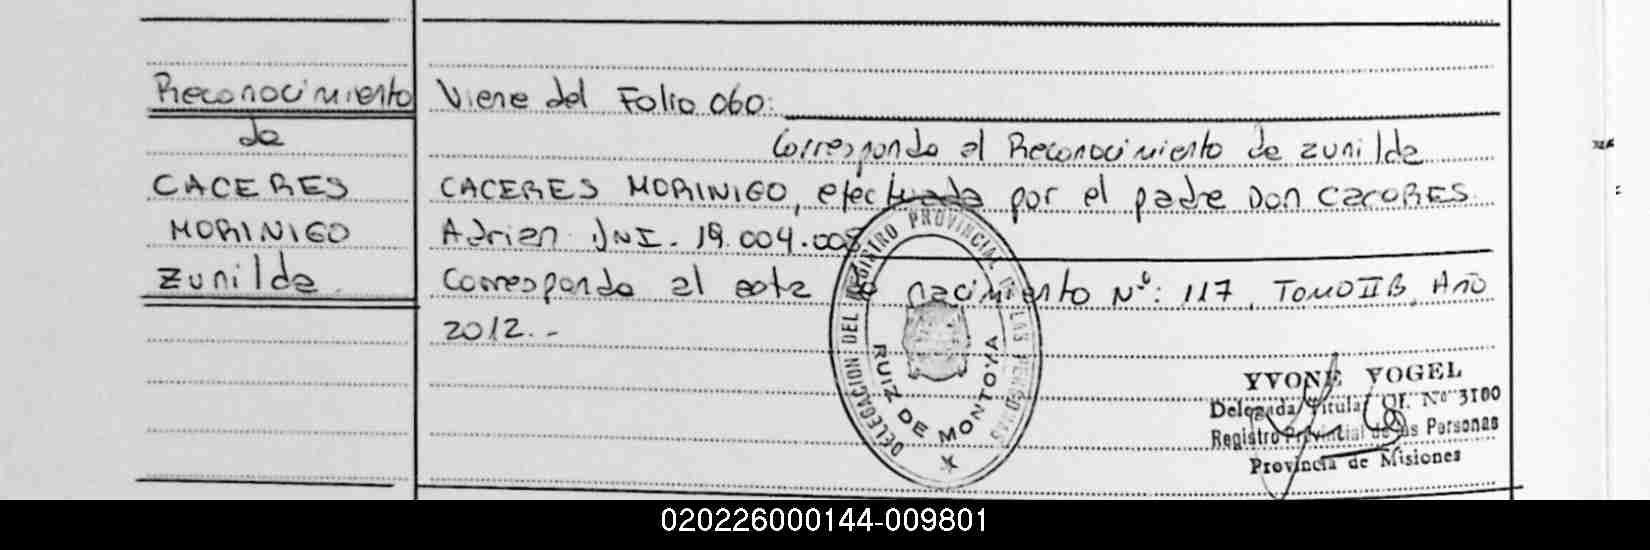 Reconocimiento
de
CACERES
MORINIGO
Zunilda.
Viene del Folio 060:
Corresponde al Reconocimiento de Zunilda
CACERES MORINIGO, efectuada por el padre Don CaceRES
Adrian DNI. 19.004.008
Corresponde al acta de nacimiento Nº: 117, TOMO II B, Año
2012.-
DELEGACION DEL REGISTRO PROVINCIAL DE LAS PERSONAS
RUIZ DE MONTOYA
YVONE VOGEL
Delegada Titular Of. Nº 3100
Registro Provincial de las Personas
Provincia de Misiones
020226000144-009801